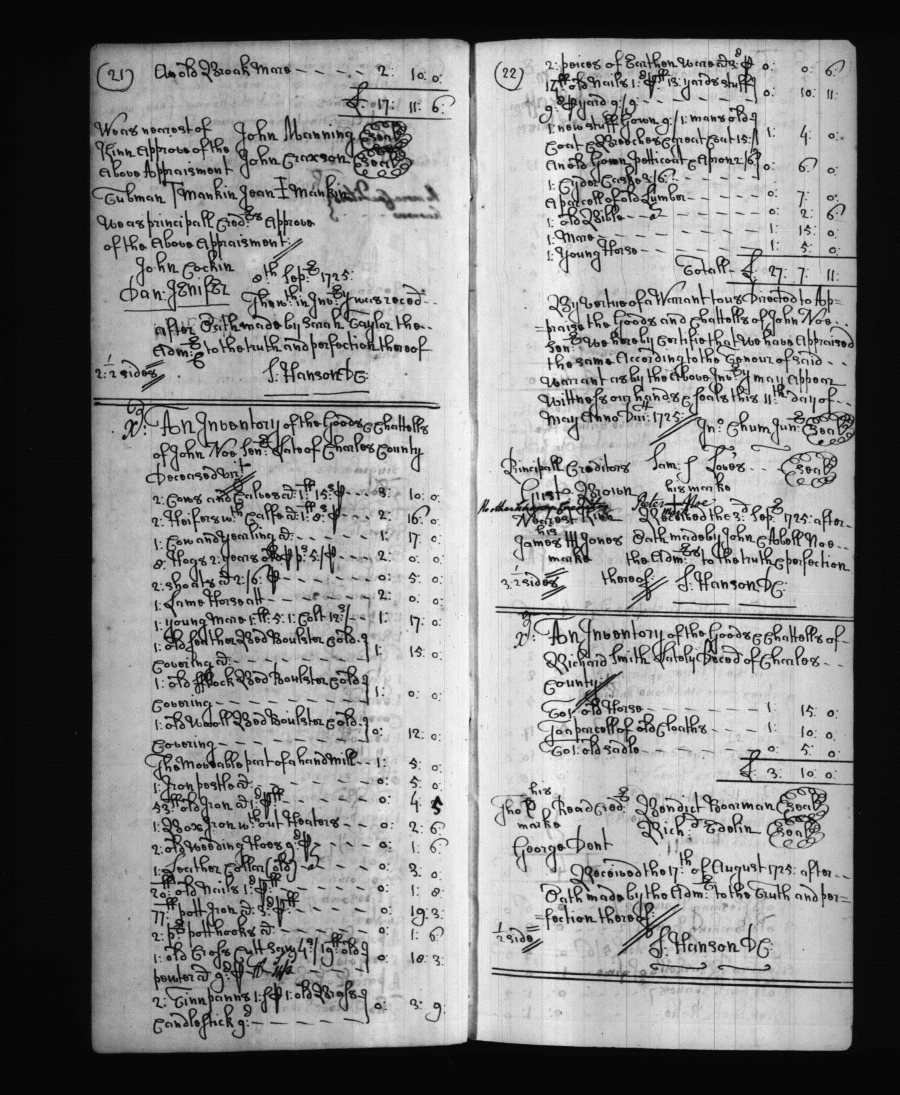 (21)
An old Broak Mare - - - - 2: 10: 0:
£ 17: 11: 6:
We as nearest of John Manning Seal
Kinn Approve of the John Claxson Seal
Above Appraisment
Tubman Mankin Jean I Mankin
We as principall Cred:rs Approve
of the Above Appraisment:
John Cockin
Dan: Jenifer
8th Sep:r 1725:
The within Inv:y was reced - -
after Oath made by Sarah Taylor the - -
Adm:x to the truth and perfection thereof
2: 1/2 sides S: Hanson DC:
X: An Inventory of the Goods & Chattells
of John Noe Sen:r Late of Charles County
Deceased viz:t
2: Cows and Calves @: 1: 15: p - - 3: 10: 0:
2: Heifers w:th Calfe @: 1: 8: p - - 2: 16: 0:
1: Cow and yearling @: - - - 1: 17: 0:
8: Hogs 2: years old p p:s 5:/p - - 2: 0: 0:
2: shoats @ 2:/6: p - - - 0: 5: 0:
1: Lame Horse att - - - 2: 0: 0:
1: young Mare 1: 5: 1: Colt 12:s/ - - 1: 17: 0:
1: old feather Bed Boulster & old
Covering @: - - - 1: 15: 0:
1: old flock Bed Boulster & old
Covering - - - 1: 0: 0:
1: old Wooll Bed Boulster & old
Covering - - - 0: 12: 0:
The Moveable part of a hand Mill - - 1: 5: 0:
1: Iron pestle @: - - - 0: 5: 0:
53: old Iron @: 1: p - - - 0: 4: 5
1: Box Iron w:th out Heaters - - 0: 2: 6:
2: old Weeding Hoes 9: p - - 0: 1: 6:
1: Leather Collar (old) - - - 0: 3: 0:
20: old Nails 1: p - - - 0: 1: 8:
77: pott Iron @: 3: p - - - 0: 19: 3:
2: p:r pott hooks @: - - - 0: 1: 6:
1: old Cross Cutt Saw 4:s/ 19: old
pewter @ 9: p - - 0: 18: 3:
2: Tinn panns 1: p 1: old Brass
Candlestick 9: - - - 0: 3: 9:
(22)
2: peices of Earthen Ware @ 3: p 0: 0: 6:
old Nails 1: p 13: yards stuff
9: p yard 9:/9: - - 0: 10: 11:
1: new stuff Gown 9:/ 1: mans old
Coat & Breeches Great Coat 15:/ 1: 4: 0:
An old Gown petticoat & Apron 2:/6
1: Cyder Caske 3:/6: - - 0: 6: 0:
A parcell of old Lumber - - 0: 7: 0:
1: old Bible - - 0: 2: 6:
1: Mare - - - 1: 15: 0:
1: Young Horse - - - 1: 5: 0:
Totall - £ 27: 7: 11:
By vertue of a Warrant to us Directed to Ap=
=praise the Goods and Chattells of John Noe - -
Sen:r We hereby Certifie that We have Appraised
the same According to the Tenour of said - -
Warrant as by the Above Inv:y may Appear
Wittness our hands & seals this 11:th day of - -
May Anno Dni: 1725: Jn:o Chum Jun:r Seal
Principall Creditors Sam: Love - - Seal
his marke
Nearest Kinn Received the 3: Sep: 1725: after -
his
James Jones Oath made by John Abell Noe - -
marke the Adm:r to the truth & perfection
3: 1/2 sides thereof S: Hanson DC:
X: An Inventory of the Goods & Chattells of -
Richard Smith Lately Deced of Charles - -
County
To 1: old Horse - - - 1: 15: 0:
To a parcell of old Cloaths - - 1: 10: 0:
To 1: old sadle - - - 0: 5: 0:
£ 3: 10: 0:
his
Tho: Read Cred:r Bendict Boarman Seal
marke Rich:d Edelin Seal
George Dent
Received the 17:th of August 1725: after - -
Oath made by the Adm:r to the Truth and per=
=fection thereof
1/2 side S: Hanson DC: